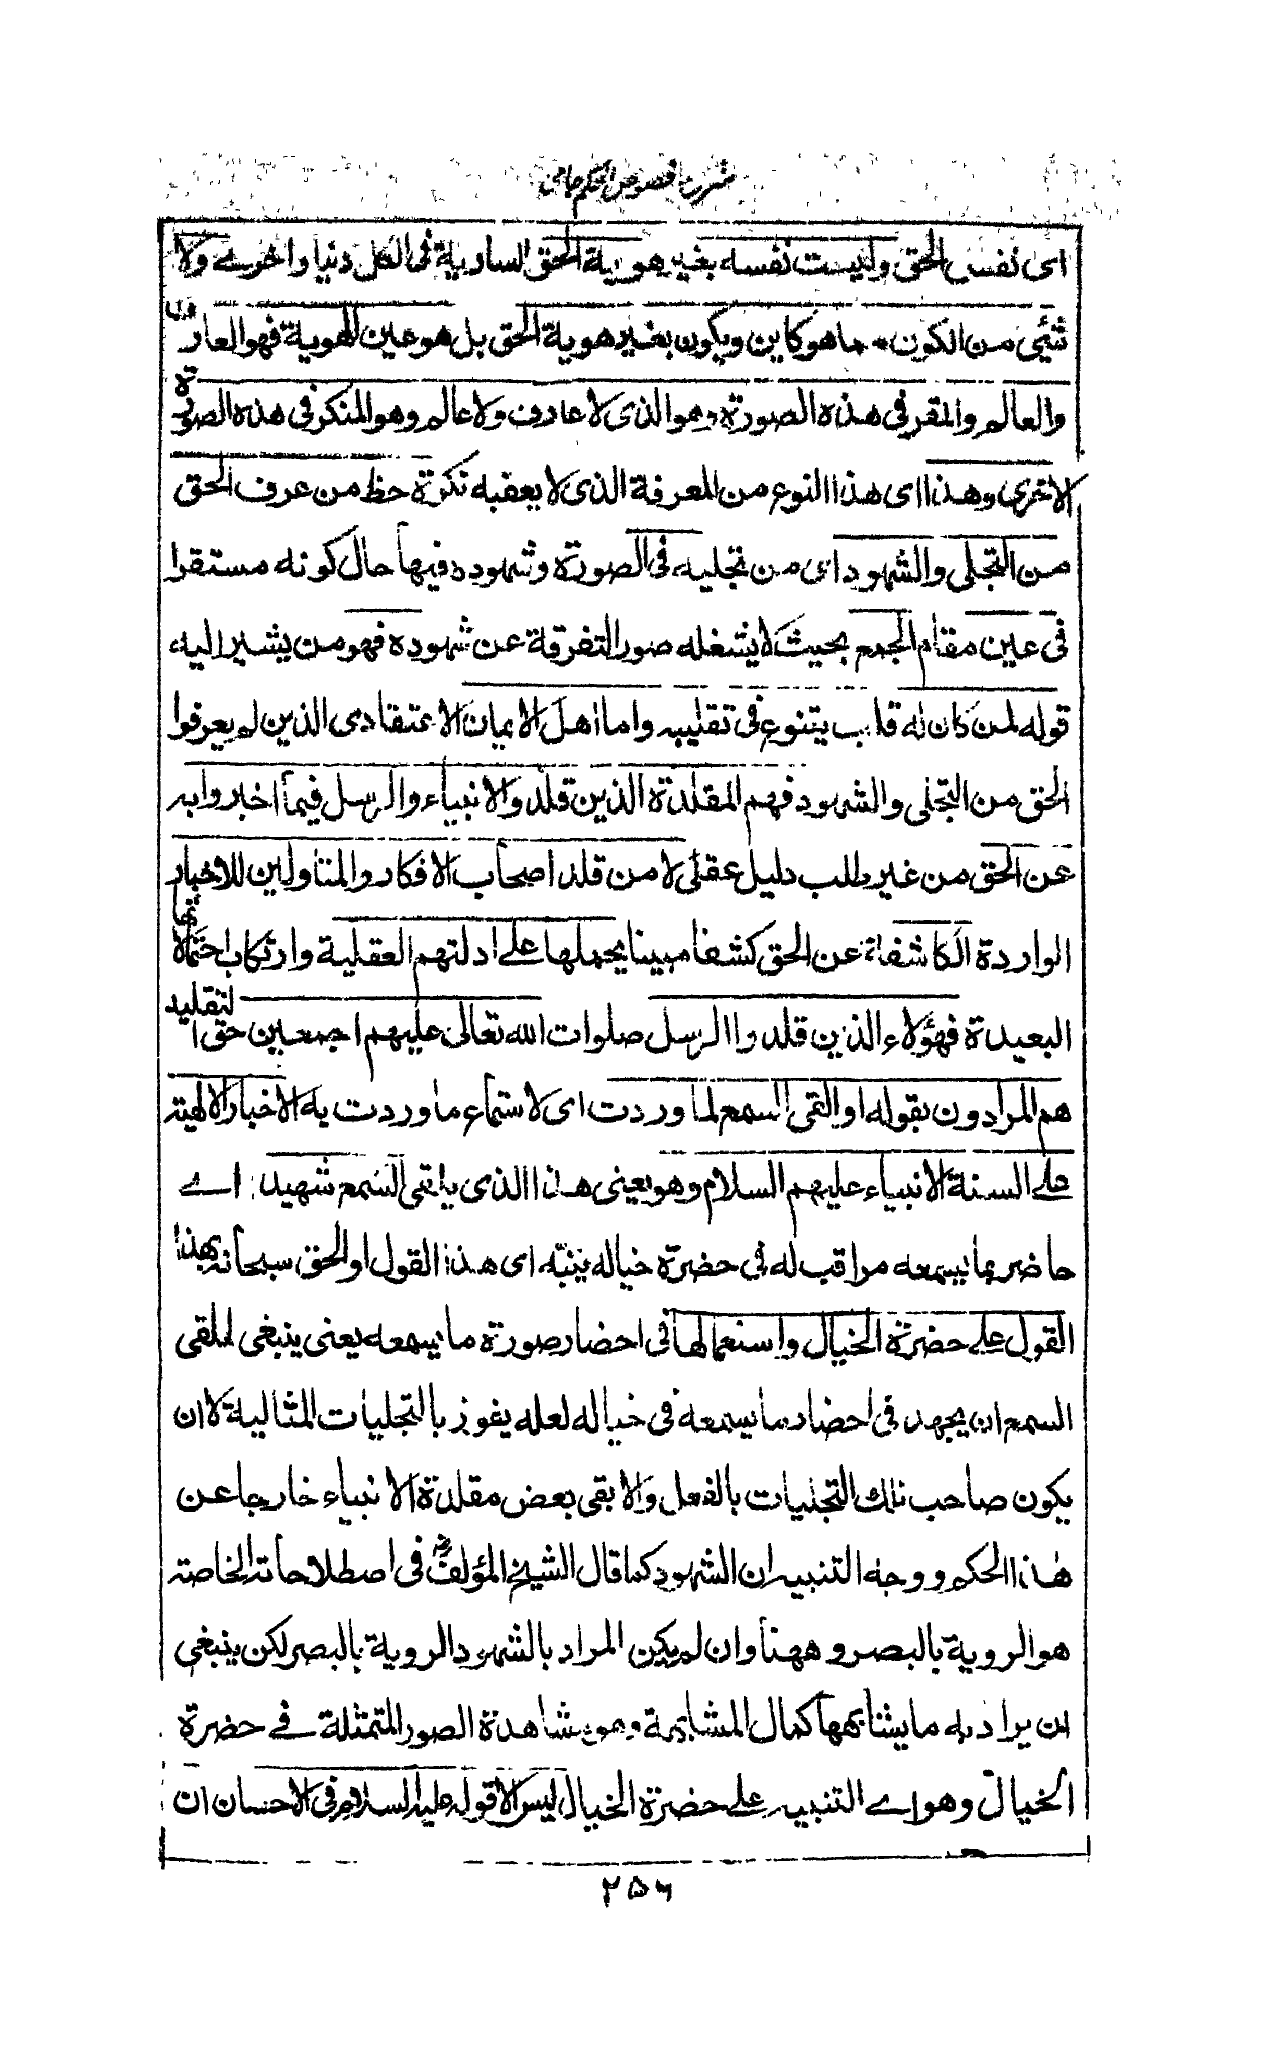 شرح فصوص الحكم جامى
اى نفس الحق وليست نفسه بغير هوية الحق السارية فى الكل دنيا واخرے ولا
شئى من الكون مما هو كاين ويكون بغير هوية الحق بل هو عين الهوية فهو العارف
والعالم والمقر فى هذه الصورة وهو الذى لا عارف ولا عالم وهو المنكر فى هذه الصورة
الاخرى وهذا اى هذا النوع من المعرفة الذى لا يعقبه نكرة حظ من عرف الحق
من التجلى والشهود اى من تجليه فى الصورة وشهوده فيها حال كونه مستقرا
فى عين مقام الجمع بحيث لا يشغله صور التفرقة عن شهوده فهو من يشير اليه
قوله لمن كان له قلب يتنوع فى تقليبه واما اهل الايمان الاعتقادى الذين لم يعرفوا
الحق من التجلى والشهود فهم المقلدة الذين قلدوا الانبياء والرسل فيما اخبروا به
عن الحق من غير طلب دليل عقلى لا من قلد اصحاب الافكار والمتاولين للاخبار
الواردة الكاشفة عن الحق كشفا مبينا بحملها على ادلتهم العقلية وارتكاب احتمالاتها
البعيدة فهؤلاء الذين قلدوا الرسل صلوات الله تعالى عليهم اجمعين حق التقليد
هم المرادون بقوله او القى السمع لما وردت اى لاستماع ما وردت به الاخبار الالهية
على السنة الانبياء عليهم السلام وهو يعنى هذا الذى يلقى السمع شهيد اے
حاضر بما يسمعه مراقب له فى حضرة خياله ينبّه اى هذا القول او الحق سبحانه بهذا
القول على حضرة الخيال واستعمالها فى احضار صورة ما يسمعه يعنى ينبغى لملقى
السمع ان يجهد فى احضار ما يسمعه فى خياله لعله يفوز بالتجليات المثالية لا ان
يكون صاحب تلك التجليات بالفعل والا بقى بعض مقلدة الانبياء خارجا عن
هذا الحكم ووجه التنبيه ان الشهود كما قال الشيخ المؤلف رض فى اصطلاحاته الخاصة
هو الروية بالبصر وههنا وان لم يكن المراد بالشهود الروية بالبصر لكن ينبغى
ان يراد به ما يشابهها كمال المشابهة وهو مشاهدة الصور المتمثلة فے حضرة
الخيال وهو اے التنبيه على حضرة الخيال ليس الا قوله عليه السلام فى الاحسان ان
٢٥٦